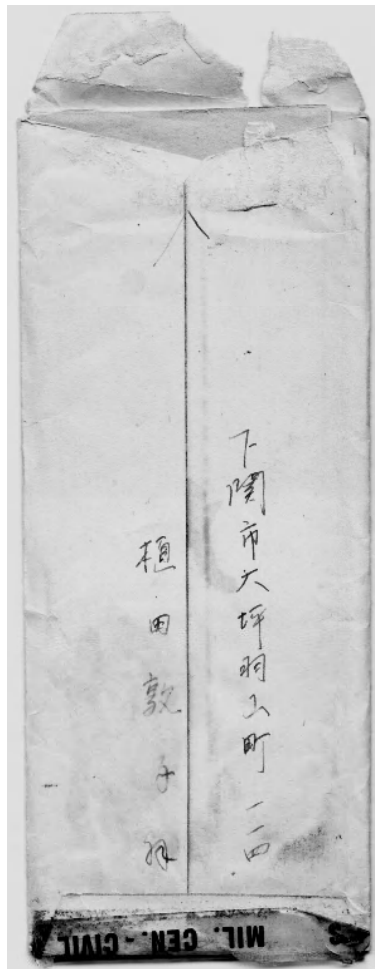 下関市大坪羽山町一一四
植田敦子拝
MIL. CEN. - CIVIL